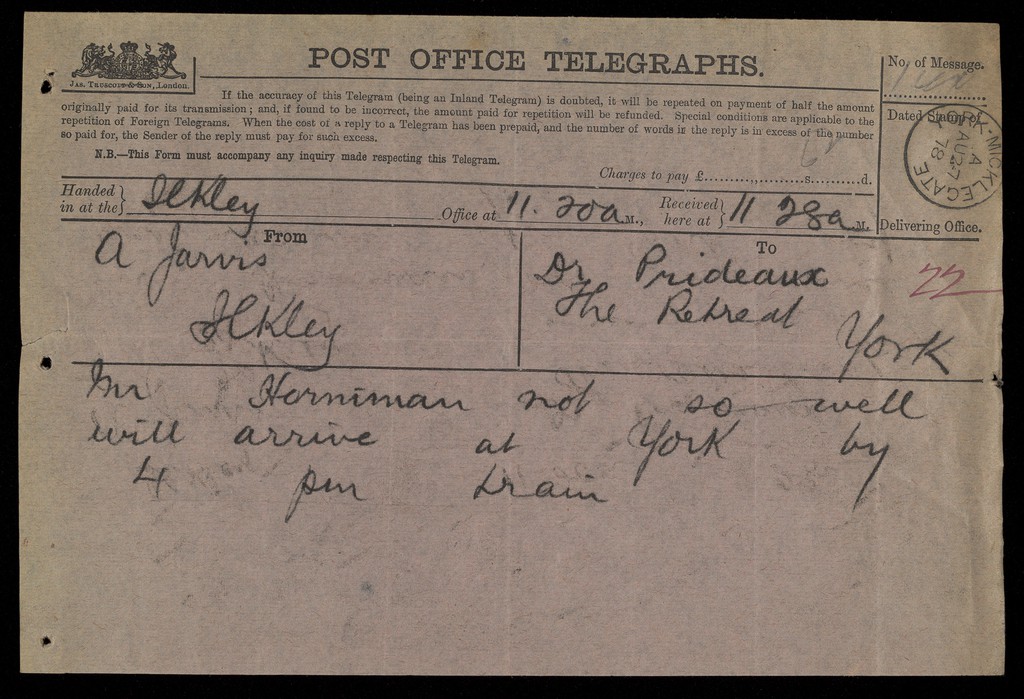 POST OFFICE TELEGRAPHS.
JAS. TRUSCOTT & SON, London.
If the accuracy of this Telegram (being an Inland Telegram) is doubted, it will be repeated on payment of half the amount
originally paid for its transmission; and, if found to be incorrect, the amount paid for repetition will be refunded. Special conditions are applicable to the
repetition of Foreign Telegrams. When the cost of a reply to a Telegram has been prepaid, and the number of words in the reply is in excess of the number
so paid for, the Sender of the reply must pay for such excess.
N.B.—This Form must accompany any inquiry made respecting this Telegram.
Charges to pay £..........,,..........s..........d.
No. of Message.
Dated Stamp of
YORK·MICKLEGATE
A
AU 27
78
Delivering Office.
Handed in at the } Ilkley Office at 11.20a M., Received here at } 11 28a M.
From
A Jarvis
Ilkley
To
Dr Prideaux
The Retreat
York
22
Mr Horniman not so well
will arrive at York by
4 pm train